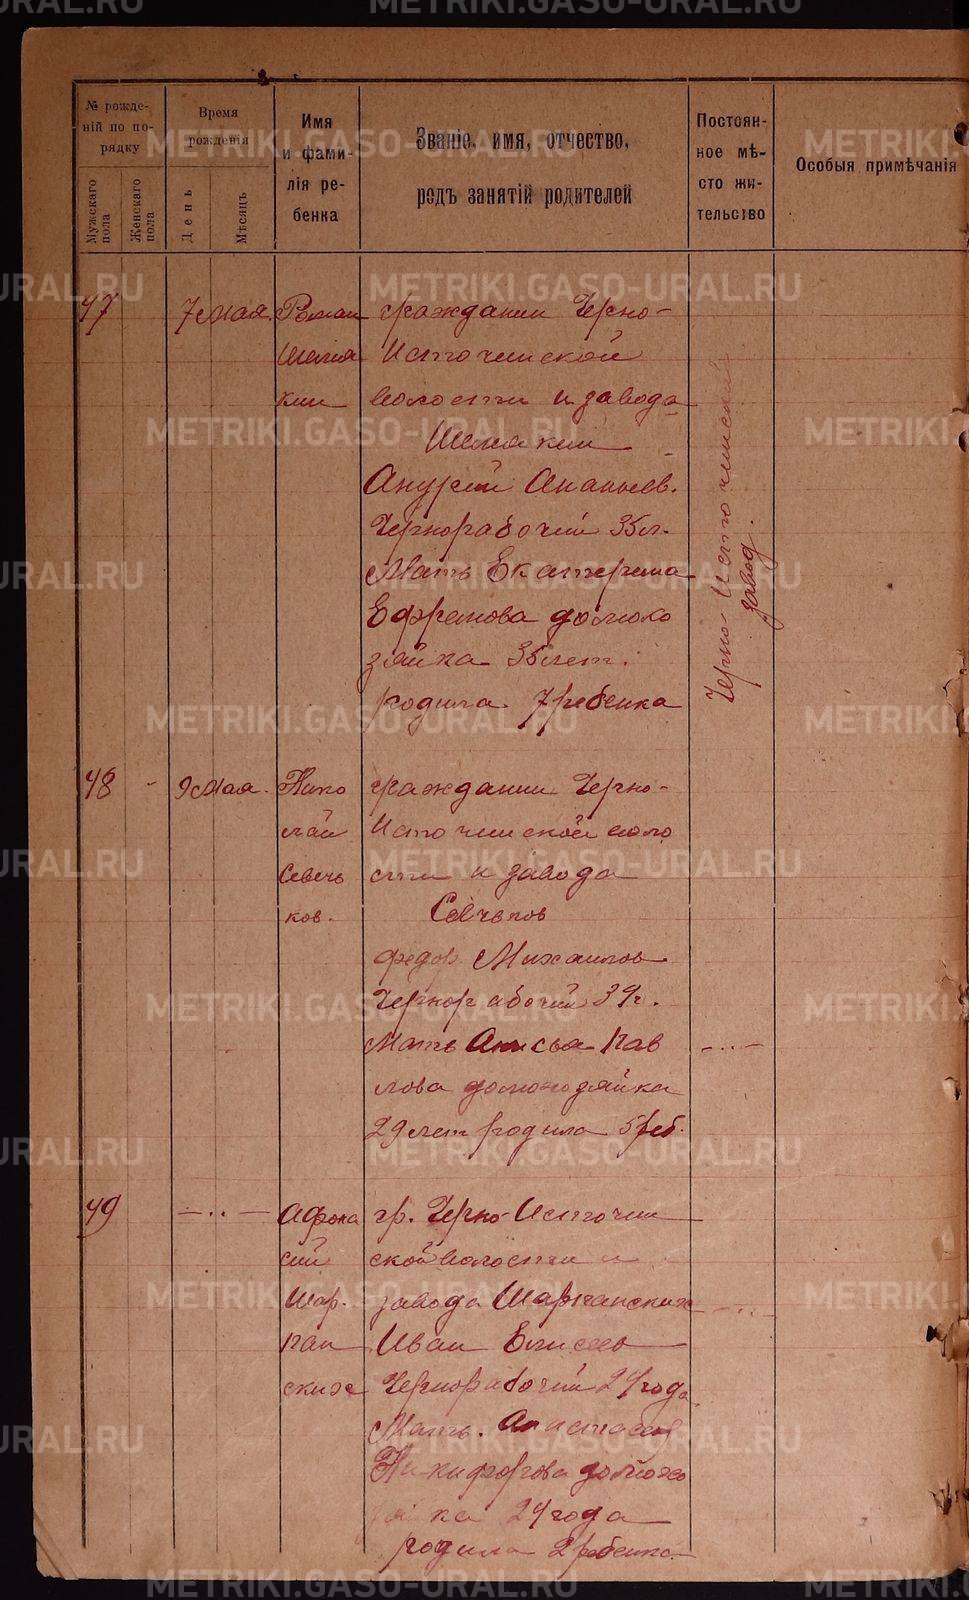 METRIKI.GASO-URAL.RU
№ рожде-
ній по по-
рядку
Время
рожденія
Имя
и фами-
лія ре-
бенка
Званіе, имя, отчество,
родъ занятій родителей
Постоян-
ное мѣ-
сто жи-
тельство
Особыя примѣчанія
Мужскаго
пола
Женскаго
пола
День
Мѣсяцъ
47
7 мая
Роман
Шемя
кин
гражданин Черно-
Источинской
волости и завода
Шемякин
Ануфий Ананьев.
Чернорабочий 35 л.
Мать Екатерина
Ефремова домохо
зяйка 35 лет.
родила 7 ребенка
Черно-Источинский
завод.
48 -
9 мая.
Нико
лай
Севень
ков.
гражданин Черно-
Источинской воло
сти и завода
Федор Михаилов
Чернорабочий 39 г.
Мать Анисья Пав
лова домохозяйка
29 лет родила 5 реб.
— .. —
49
— .. —
Афона
сий
Шар-
пан
ских
гр. Черно-Источин
ской волости и
завода Шарпанских
Иван Елисеев
Чернорабочий 24 года
Мать. Анастасея
Никифорова домохо
зяйка 24 года
родила 2 ребенка
— .. —